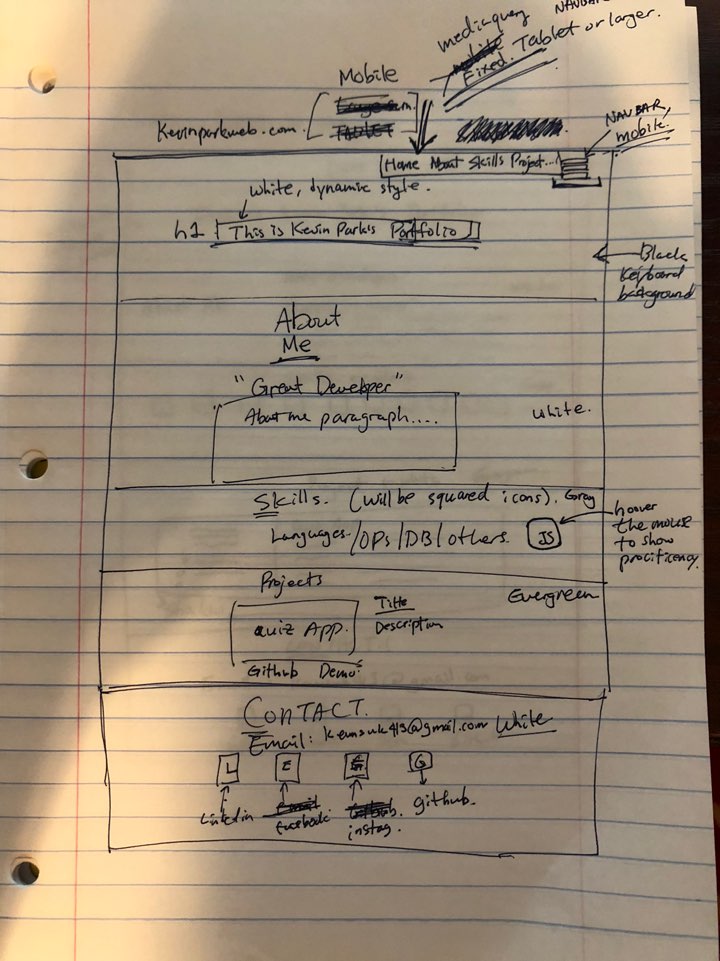 NAVBAR
mediaquery
Fixed. Tablet or larger.
Mobile
Kevinparkweb.com.
NAVBAR,
mobile.
Home About Skills Project...
white, dynamic style.
h1 This is Kevin Park's Portfolio
Black
Keyboard
background
About
Me
"Great Developer"
About me paragraph....
white.
Skills. (will be squared icons). Gray
Languages /OPs/DB/others. JS
hover
the mouse
to show
proficiency.
Projects
Evergreen
Quiz App.
Title
Description
Github Demo
CONTACT.
Email: @gmail.com White
L E G
Linkedin facebook instag. github.